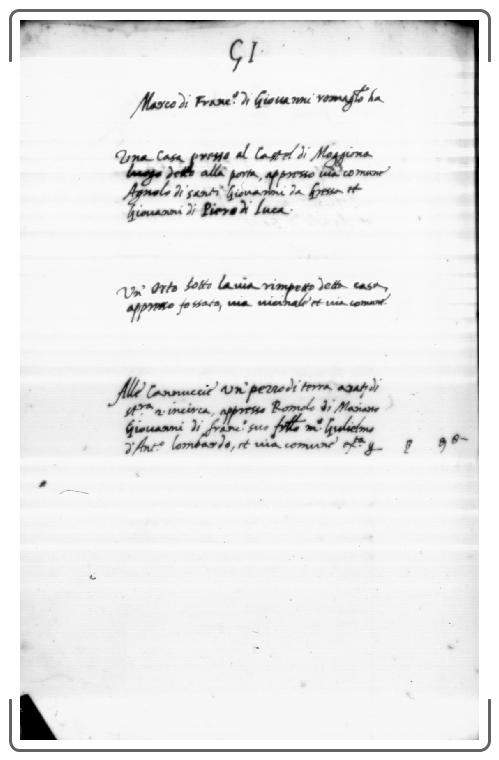 51
Marco di Franc.º di Giovanni romag.lo ha
Una Casa presso al Castel di Moggiona
luogo detto alla porta, appresso via comune
Agnolo di santi Giovanni da Gressa et
Giovanni di Piero di Luca.
Un' Orto sotto la via rimpetto detta casa,
appresso fossato, via vicinale et via comune
Alle Cannuccie un' pezzo di terra arat.
st.ra 2 incirca, appresso Romolo di Mariano
Giovanni di franc.º suo frllo m.º Gulielmo
d'Ant.º lombardo, et via comune